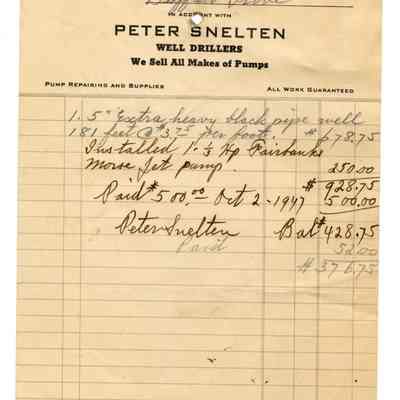 IN ACCOUNT WITH
PETER SNELTEN
WELL DRILLERS
We Sell All Makes of Pumps
PUMP REPAIRING AND SUPPLIES ALL WORK GUARANTEED
1. 5" Extra heavy black pipe well
181 feet @ $3.75 per foot. $678.75
Installed 1-1/3 Hp Fairbanks
Morse Jet pump. 250.00
$928.75
Paid $500.00 Oct 2-1947 500.00
Peter Snelten Bal $428.75
Paid 52.00
$376.75